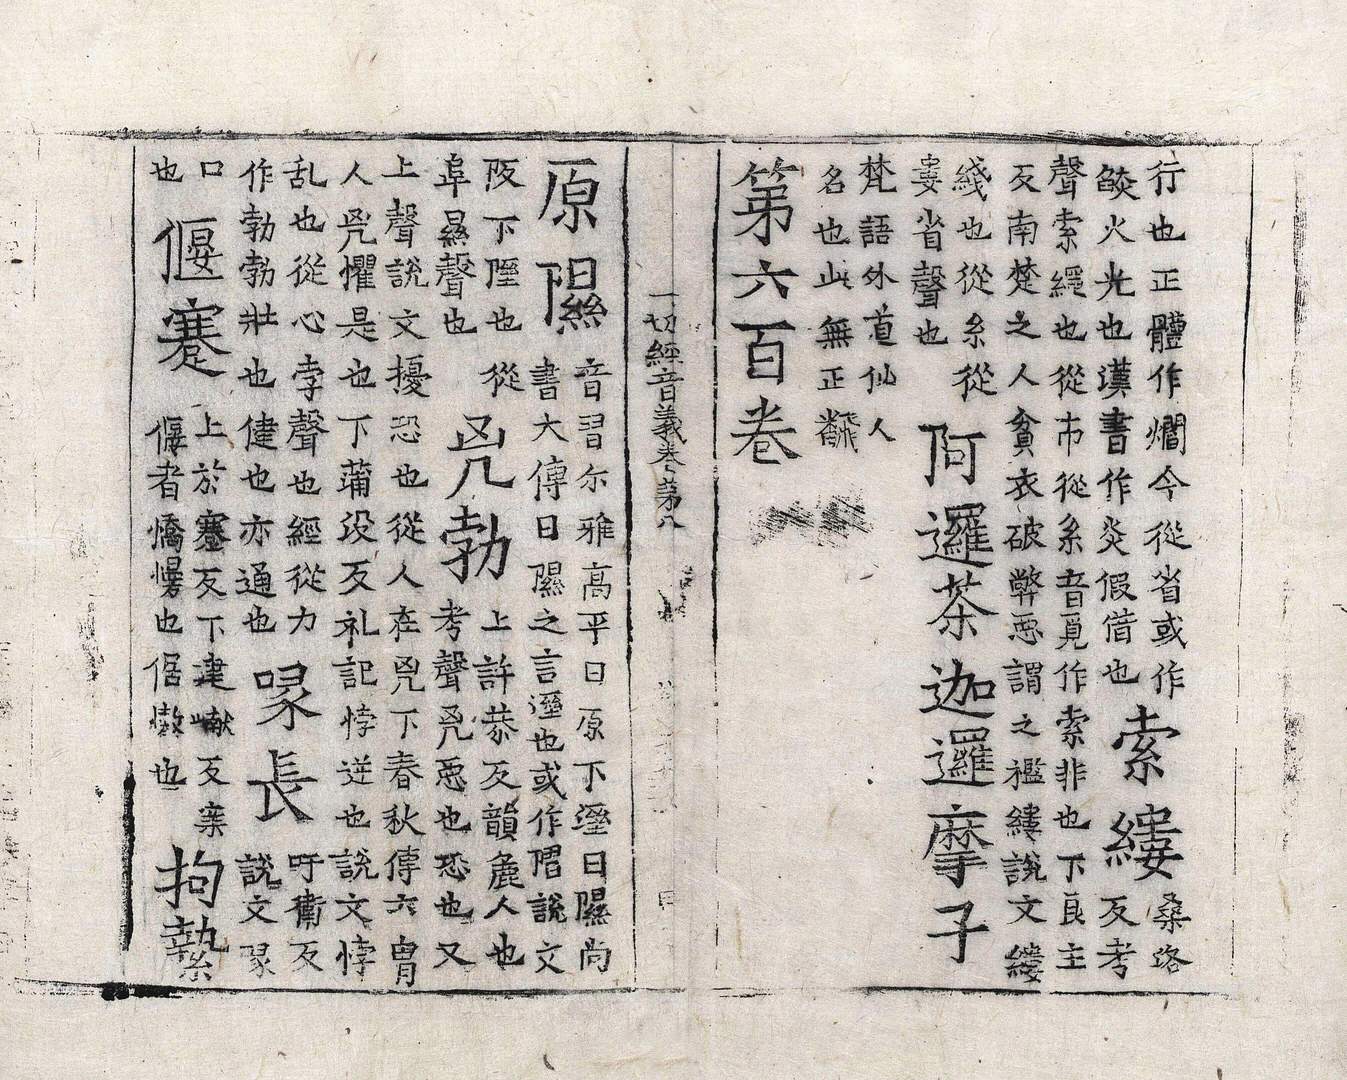 行也正體作爓今從省或作
燄火光也漢書作炎假借也
索縷
桑洛
反考
聲索繩也從巿從糸音覓作索非也下良主
反南楚之人貧衣破弊惡謂之襤縷說文縷
綫也從糸從
婁省聲也
阿邏荼迦邏摩子
梵語外道仙人
名也此無正翻
第六百卷
一切經音義卷第八
原隰
音習尒雅高平曰原下溼曰隰尚
書大傳曰隰之言溼也或作隰說文
阪下隰也從
阜㬎聲也
兇勃
上許恭反韻麁人也
考聲兇惡也恐也又
上聲說文擾恐也從人在兇下春秋傳云曺
人兇懼是也下蒲沒反礼記悖逆也說文悖
乱也從心孛聲也經從力
作勃勃壯也健也亦通也
喙長
吁穢反
說文喙
口
也
偃蹇
上於蹇反下建巘反案
偃者憍慢也倨慠也
拘縶